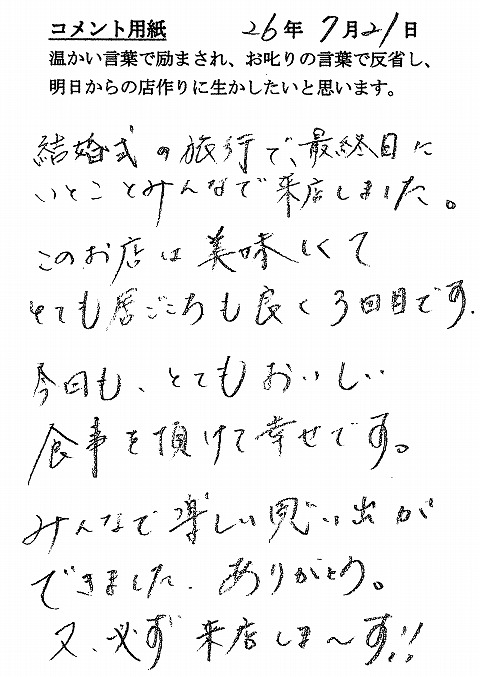 コメント用紙 26年7月21日
温かい言葉で励まされ、お叱りの言葉で反省し、
明日からの店作りに生かしたいと思います。
結婚式の旅行で、最終日に
いとことみんなで来店しました。
このお店は美味しくて
とても居ごこちも良く3回目です.
今回も、とてもおいしい
食事を頂けて幸せです。
みんなで楽しい思い出が
できました. ありがとう。
又、必ず来店しま〜す!!